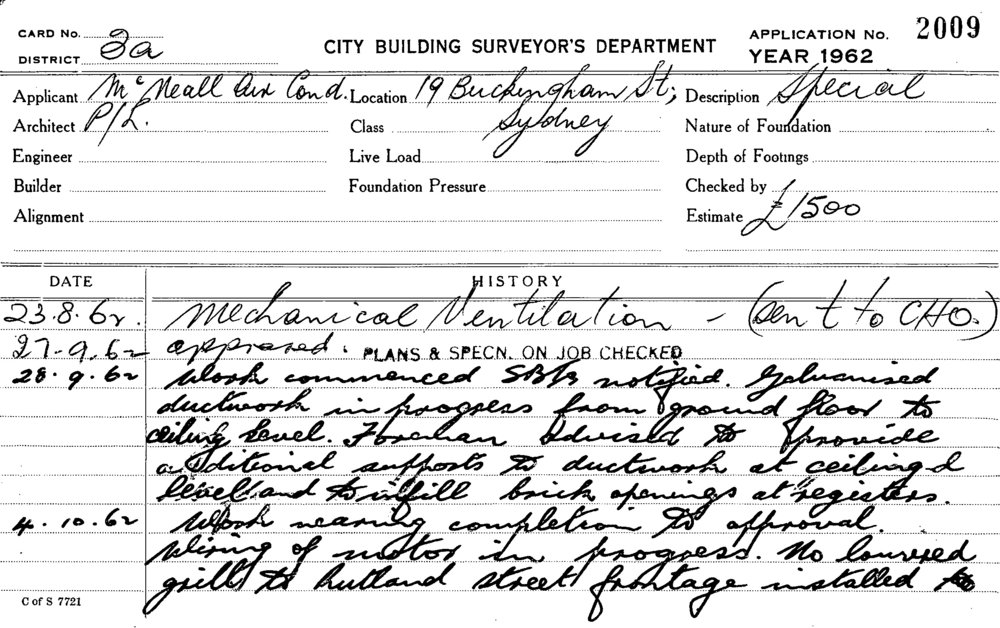 CARD No. 2a
DISTRICT
CITY BUILDING SURVEYOR'S DEPARTMENT
APPLICATION No. 2009
YEAR 1962
Applicant McNeall Air Cond. Location 19 Buckingham St; Description Special
Architect P/L. Class Sydney Nature of Foundation
Engineer Live Load Depth of Footings
Builder Foundation Pressure Checked by
Alignment Estimate £1500
DATE HISTORY
23.8.62. Mechanical Ventilation - (Sent to CHO.)
27.9.62 approved. PLANS & SPECN. ON JOB CHECKED
28.9.62 Work commenced notified. Galvanised
ductwork in progress from ground floor to
ceiling level. Foreman advised to provide
additional supports to ductwork at ceiling
level and to infill brick openings at registers.
4.10.62 Work nearing completion to approval.
Wiring of motor in progress. No louvred
grill to Rutland street frontage installed to
C of S 7721